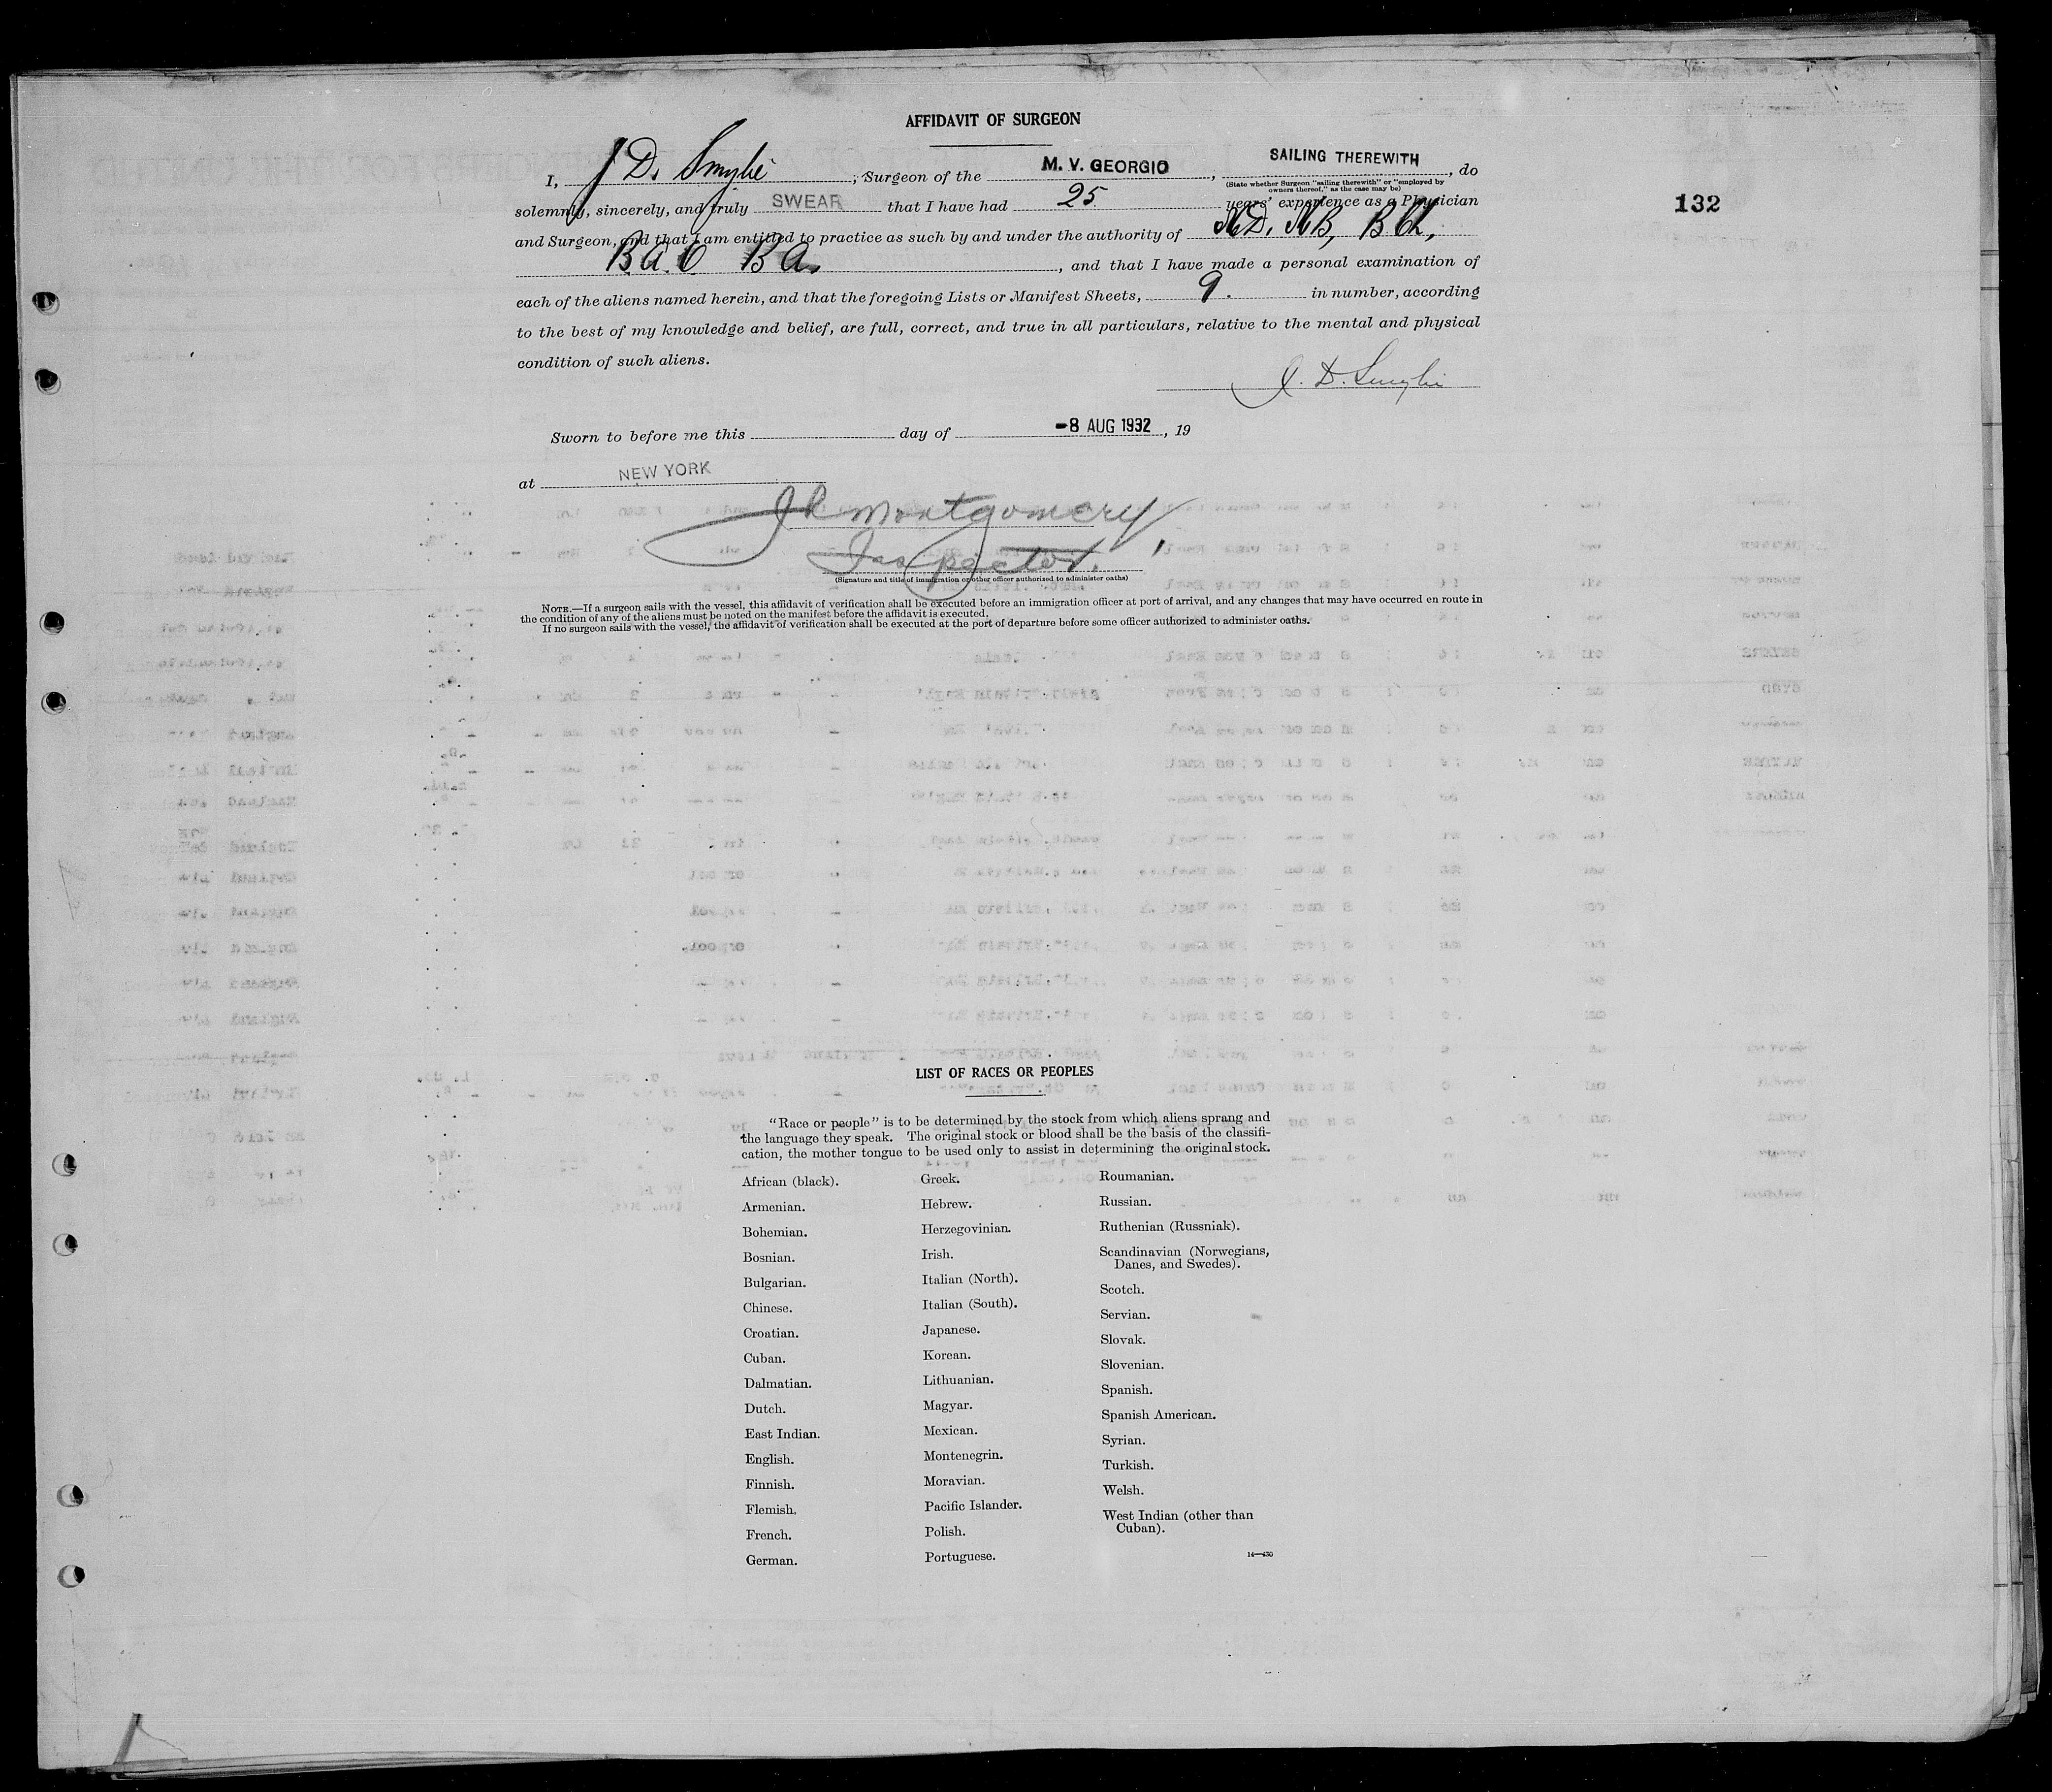 AFFIDAVIT OF SURGEON
I, J D. Smylie, Surgeon of the M. V. GEORGIO, SAILING THEREWITH, do
(State whether Surgeon "sailing therewith" or "employed by
owners thereof," as the case may be)
132
solemnly, sincerely, and truly SWEAR that I have had 25 years' experience as a Physician
and Surgeon, and that I am entitled to practice as such by and under the authority of MD, MB, B Ch,
B a. O B a., and that I have made a personal examination of
each of the aliens named herein, and that the foregoing Lists or Manifest Sheets, 9. in number, according
to the best of my knowledge and belief, are full, correct, and true in all particulars, relative to the mental and physical
condition of such aliens.
J. D. Smylie
Sworn to before me this day of -8 AUG 1932, 19
at NEW YORK
J R Montgomery,
Inspector.
(Signature and title of immigration or other officer authorized to administer oaths)
NOTE.—If a surgeon sails with the vessel, this affidavit of verification shall be executed before an immigration officer at port of arrival, and any changes that may have occurred en route in
the condition of any of the aliens must be noted on the manifest before the affidavit is executed.
If no surgeon sails with the vessel, the affidavit of verification shall be executed at the port of departure before some officer authorized to administer oaths.
LIST OF RACES OR PEOPLES
"Race or people" is to be determined by the stock from which aliens sprang and
the language they speak. The original stock or blood shall be the basis of the classifi-
cation, the mother tongue to be used only to assist in determining the original stock.
African (black).
Armenian.
Bohemian.
Bosnian.
Bulgarian.
Chinese.
Croatian.
Cuban.
Dalmatian.
Dutch.
East Indian.
English.
Finnish.
Flemish.
French.
German.
Greek.
Hebrew.
Herzegovinian.
Irish.
Italian (North).
Italian (South).
Japanese.
Korean.
Lithuanian.
Magyar.
Mexican.
Montenegrin.
Moravian.
Pacific Islander.
Polish.
Portuguese.
Roumanian.
Russian.
Ruthenian (Russniak).
Scandinavian (Norwegians,
Danes, and Swedes).
Scotch.
Servian.
Slovak.
Slovenian.
Spanish.
Spanish American.
Syrian.
Turkish.
Welsh.
West Indian (other than
Cuban).
14—430